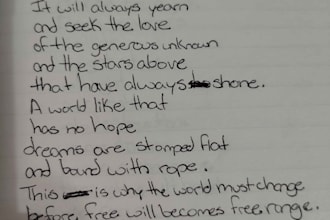 It will always yearn
and seek the love
of the generous unknown
and the stars above
that have always shone.
A world like that
has no hope
dreams are stomped flat
and bound with rope.
This is why the world must change
before free will becomes free range.